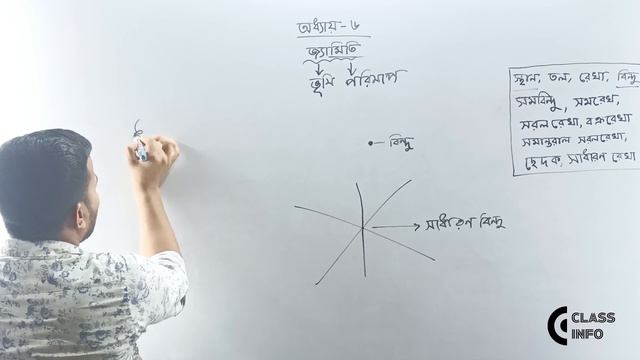 অধ্যায় - ৬
জ্যামিতি
ভূমি পরিমাপ
স্থান, তল, রেখা, বিন্দু
সমবিন্দু, সমরেখ,
সরল রেখা, বক্ররেখা
সমান্তরাল সরলরেখা,
ছেদক, সাধারণ রেখা
বিন্দু
সাধারণ বিন্দু
CLASS
INFO